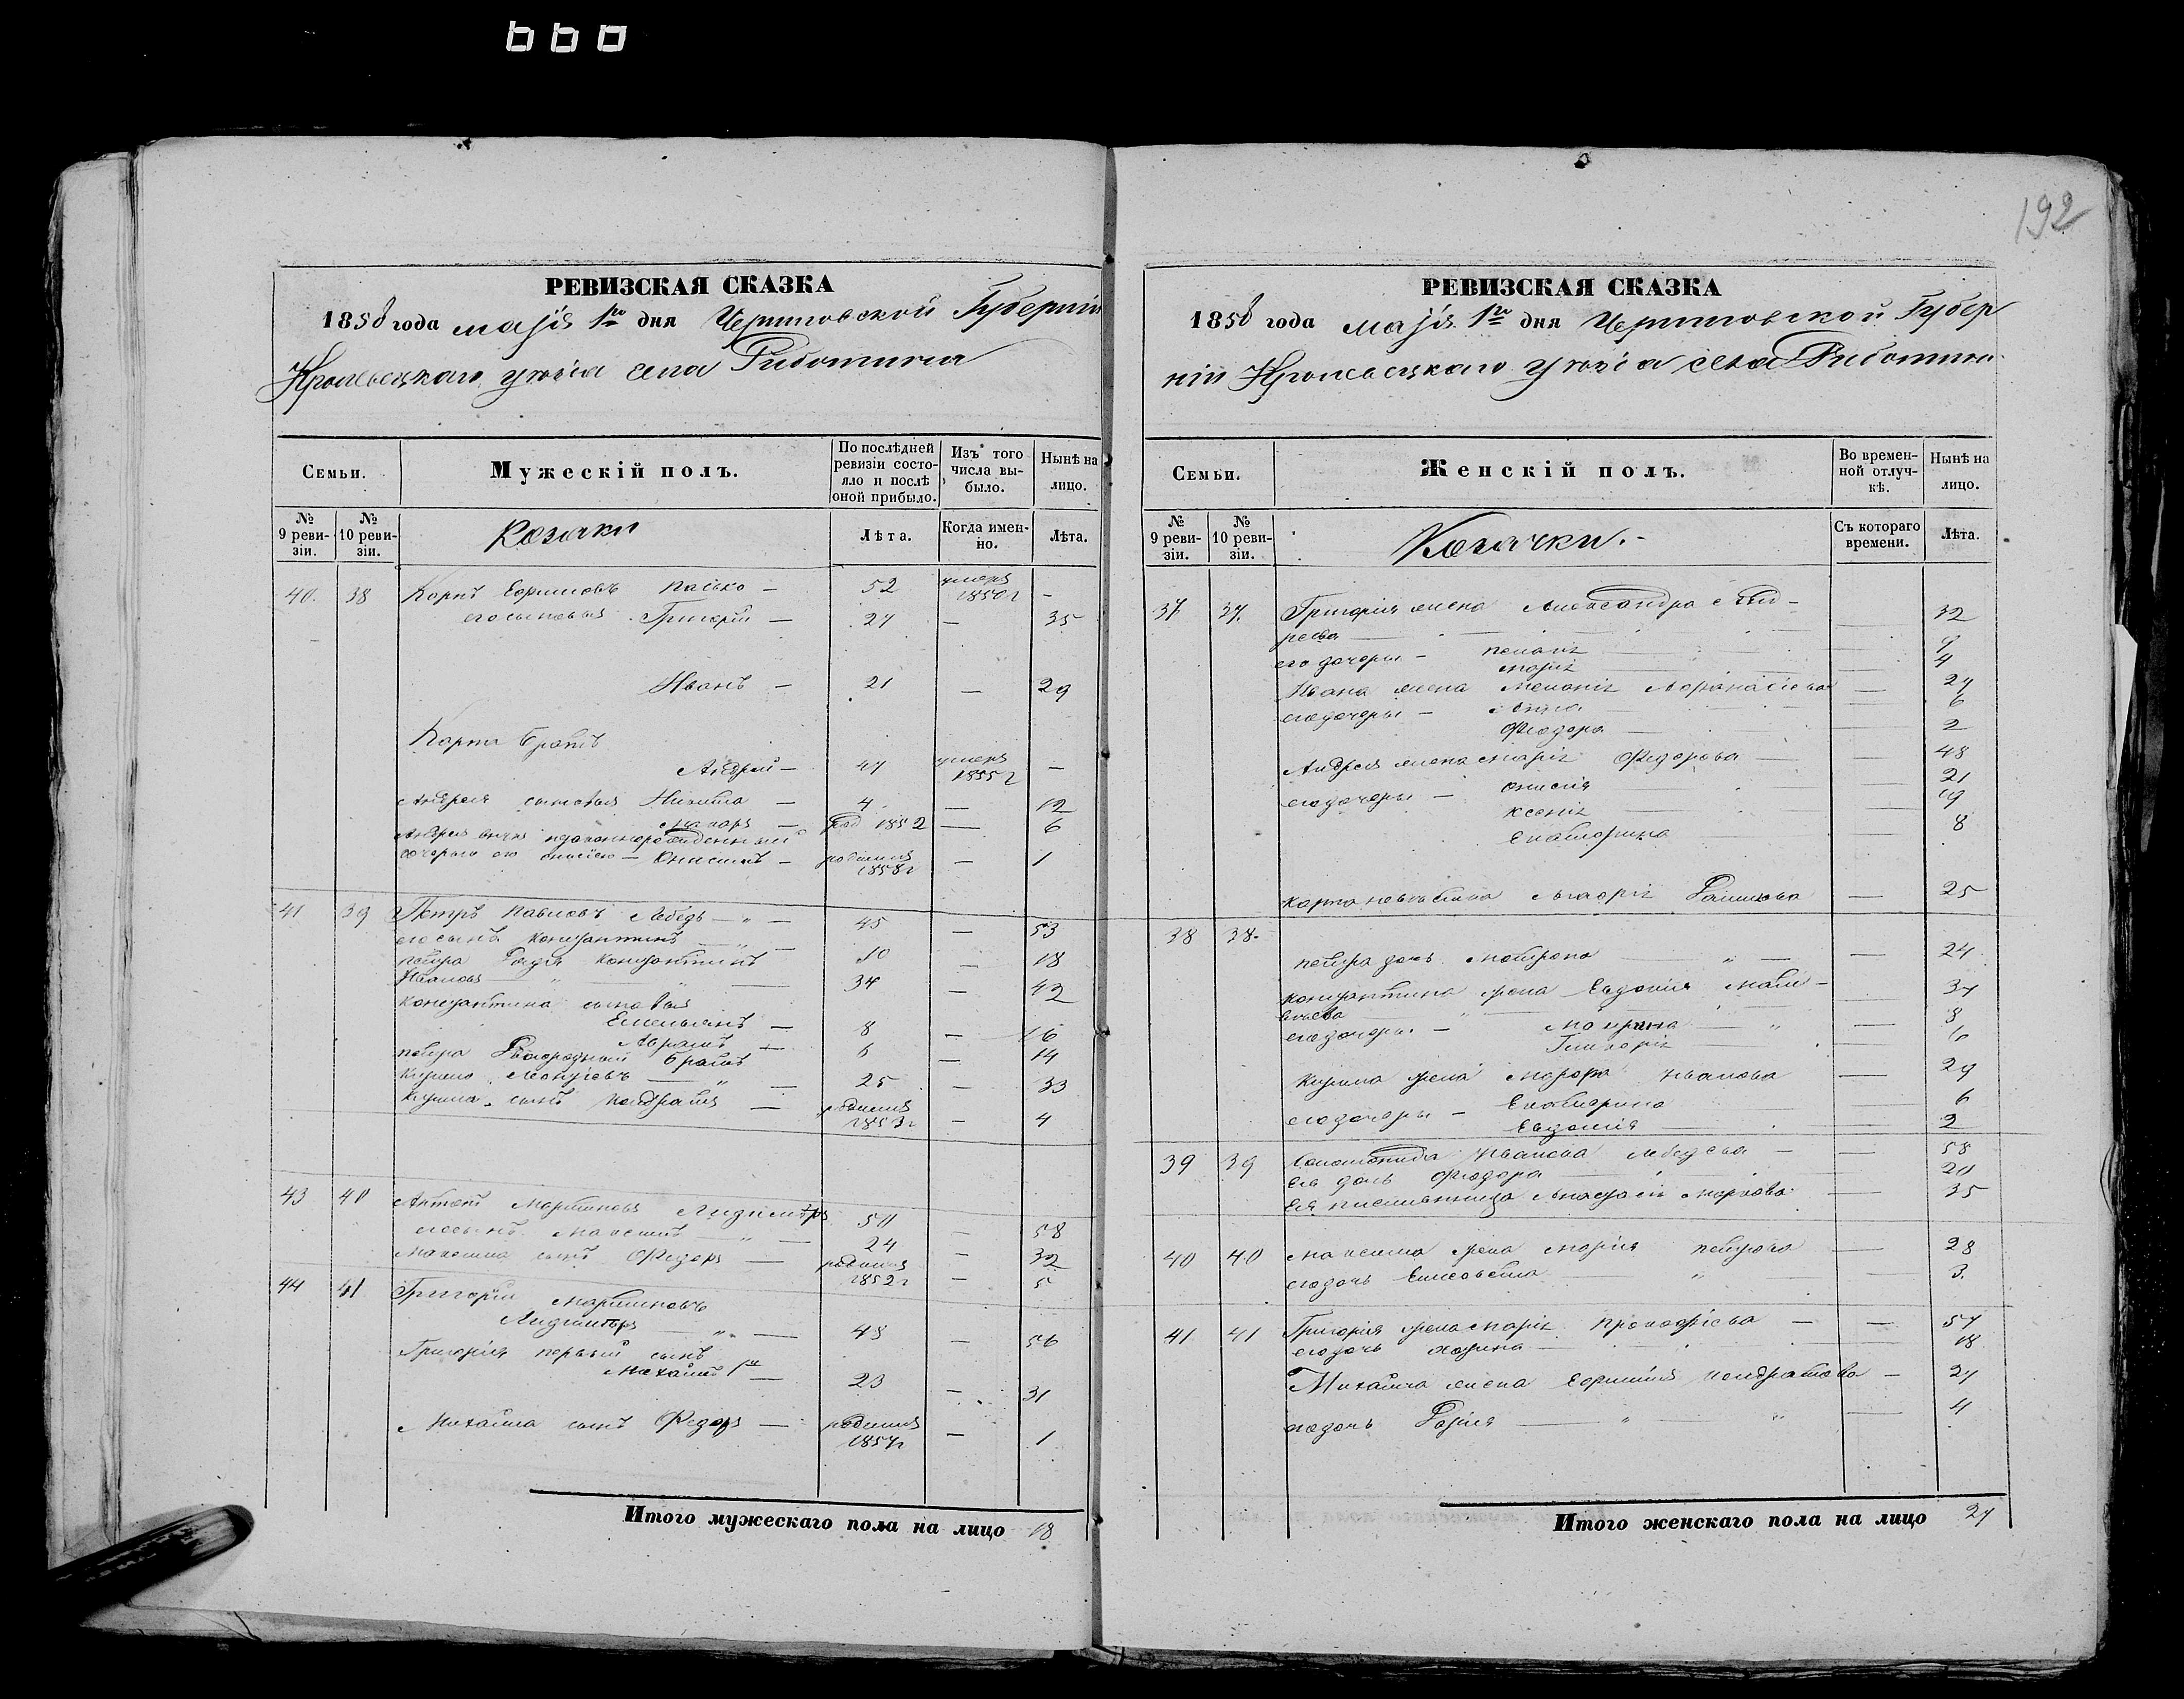 192
РЕВИЗСКАЯ СКАЗКА
1858 года маjя 1го дня Черниговской Губерніи
Кролевецкаго уѣзда села Риботина
Семьи.
Мужескій полъ.
По послѣдней ревизіи состояло и послѣ оной прибыло.
Изъ того числа выбыло.
Нынѣ на лицо.
№ 9 ревизіи.
№ 10 ревизіи.
Козаки
Лѣта.
Когда именно.
Лѣта.
40. 38 Карпъ Ефимовъ Пасько — 52 умеръ 1850 г —
его сыновья Григорій — 27 — 35
Иванъ — 21 — 29
Карпа братъ
Андрей — 47 умеръ 1855 г —
Андрея сыновья Никита — 4 — 12
Макаръ — род 1852 — 6
Андрея внукъ незаконнорожденный
дочерью его — Онисимъ — родился 1858 г — 1
41 39 Петръ Павловъ Лебедь — " — 45 — 53
его сынъ Константинъ — " — 10 — 18
Петра дядя Константинъ
Ивановъ — " — 34 — 42
Константина сыновья
Емельянъ — 8 — 16
Абрамъ — 6 — 14
Петра двоюродный братъ
Кирило — " — 25 — 33
Кирила сынъ Кондратъ — родился — 4
43 40 Антонъ Мартиновъ 50 — 58
его сынъ Максимъ — " — 24 — 32
Максима сынъ Федоръ — родился 1852 г — 5
44 41 Григорій Мартиновъ
— " — 48 — 56
Григорія первый сынъ
Михаилъ 1й — 23 — 31
Михаила сынъ Федоръ — родился 1857 г — 1
Итого мужескаго пола на лицо 18
РЕВИЗСКАЯ СКАЗКА
1858 года маjя 1го дня Черниговской Губер
ніи Кролевецкаго уѣзда села Риботина
Семьи.
Женскій полъ.
Во временной отлучкѣ.
Нынѣ на лицо.
№ 9 ревизіи.
№ 10 ревизіи.
Козачки.
Съ котораго времени.
Лѣта.
37 37. Григорія жена Александра Анд-
реева — 32
его дочери — 9
Марія — 4
Ивана жена Меланія Афанасіева — 27
его дочери — Анна — 6
Феодора — 2
Андрея жена Марія Федорова — 48
его дочери — Онисія — 21
Ксенія — 19
Екатерина — 8
Карпа невѣстка — 25
38 38.
Петра дочь Матрона — " — 24
Константина жена Евдокія Мат-
вѣева — " — 37
его дочери — Мокрина — " — 8
Гликерія
Кирила жена Марфа Иванова 29
его дочери — Екатерина 6
Евдокія — 2
39 39 Соломонида Иванова — 58
ея дочь Феодора — 20
Ея племянница Анастасія Маркова — 35
40 40 Максима жена Марія Петрова — 28
его дочь Елисавета — " — 3.
41. 41 Григорія жена Марія Прокофіева — 57
его дочь — 18
Михаила жена Ефимія Кондратова — 27
его дочь — " — " — 4
Итого женскаго пола на лицо 27